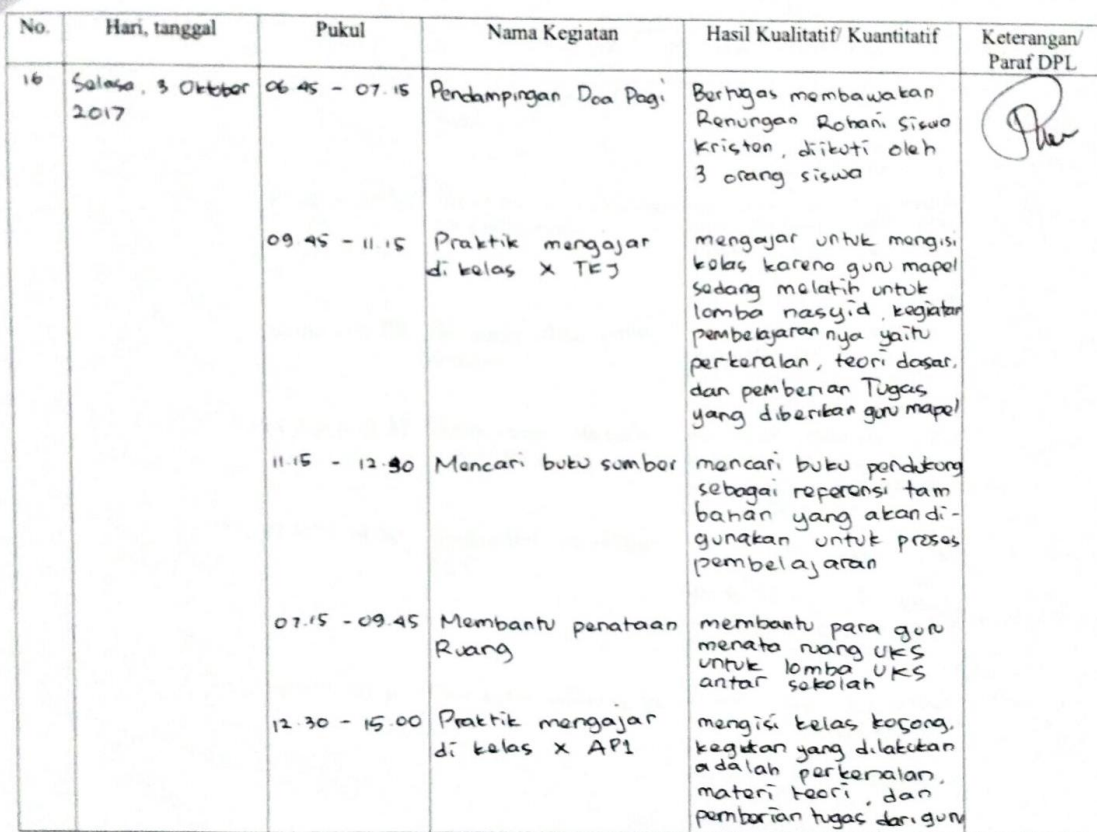 No.
Hari, tanggal
Pukul
Nama Kegiatan
Hasil Kualitatif/ Kuantitatif
Keterangan/
Paraf DPL
16
Selasa, 3 Oktober
2017
06.45 - 07.15
Pendampingan Doa Pagi
Bertugas membawakan
Renungan Rohani siswa
Kristen, diikuti oleh
3 orang siswa
09.45 - 11.15
Praktik mengajar
di kelas X TKJ
mengajar untuk mengisi
kelas karena guru mapel
sedang melatih untuk
lomba nasyid, kegiatan
pembelajaran nya yaitu
perkenalan, teori dasar,
dan pemberian Tugas
yang diberikan guru mapel
11.15 - 12.30
Mencari buku sumber
mencari buku pendukung
sebagai referensi tam
bahan yang akan di-
gunakan untuk proses
pembelajaran
07.15 - 09.45
Membantu penataan
Ruang
membantu para guru
menata ruang UKS
untuk lomba UKS
antar sekolah
12.30 - 15.00
Praktik mengajar
di kelas X AP1
mengisi kelas kosong,
kegiatan yang dilakukan
adalah perkenalan,
materi teori, dan
pemberian tugas dari guru